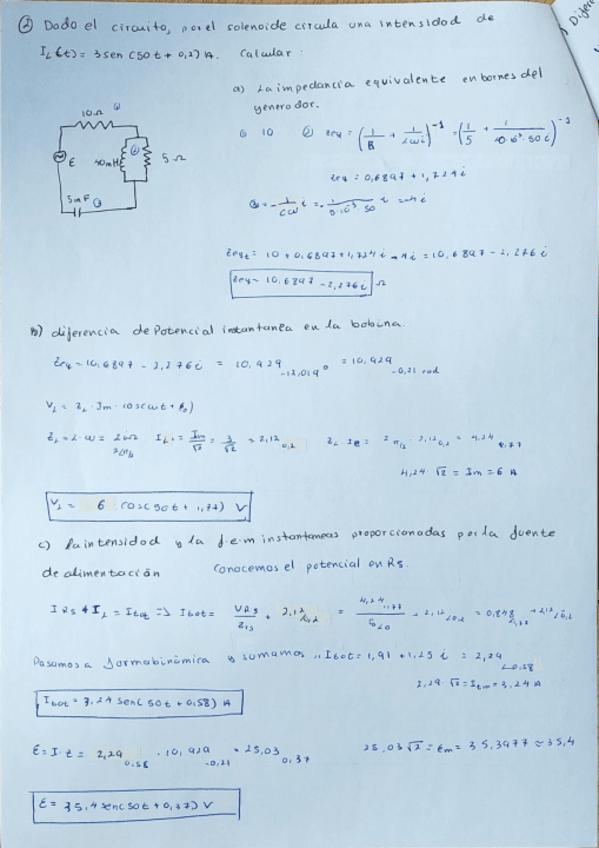 ② Dado el circuito, por el solenoide circula una intensidad de
I_L(t) = 3sen (50t + 0,2) A. Calcular:
a) La impedancia equivalente en bornes del
generador.
10Ω ①
E
40mH ②
5 Ω
5mF ③
① 10 ② Zeq = (1/R + 1/Lωi)^-1 = (1/5 + 1/(40·10^-3·50 i))^-1
Zeq = 0,6897 + 1,724 i
③ = - 1/Cω i = - 1/(5·10^-3·50) i = -4 i
Zeq_t = 10 + 0,6897 + 1,724 i - 4 i = 10,6897 - 2,276 i
Zeq = 10,6897 - 2,276 i Ω
b) diferencia de Potencial instantanea en la bobina.
Zeq = 10,6897 - 2,276 i = 10,929 -12,019° = 10,929 -0,21 rad
V_L = Z_L · Im · cos(ωt + φ_0)
Z_L = L·ω = I_L = Im/√2 = 3/√2 = 2,12 0,2 Z_L · Ie = 2 π/2 · 2,12 0,2 = 4,24 1,77
4,24 · √2 = Im = 6 A
V_L = 6 cos(50t + 1,77) V
c) la intensidad y la f.e.m instantaneas proporcionadas por la fuente
de alimentación Conocemos el potencial en R5.
I R5 + I_L = Itot => Itot = VR5/Z15 + 2,12∠0,2 = 4,24 1,77/5∠0 + 2,12∠0,2 = 0,848 1,77 + 2,12∠0,2
Pasamos a forma binómica y sumamos, Itot = 1,91 + 1,25 i = 2,29 ∠0.58
2,29 · √2 = Itm = 3,24 A
Itot = 3,24 sen( 50t + 0,58) A
E = I·Z = 2,29 0,58 · 10,929 -0,21 = 25,03 0,37 25,03√2 = Em = 35,3977 ≈ 35,4
E = 35,4 sen(50t + 0,37) V